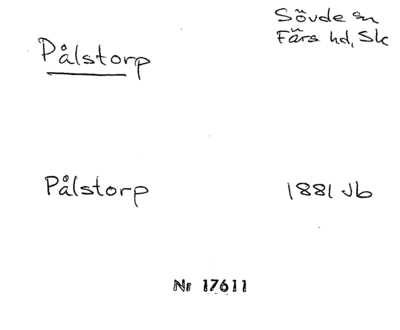 Sövde sn
Färs hd, Sk
Pålstorp
Pålstorp 1881 Jb
Nr 17611